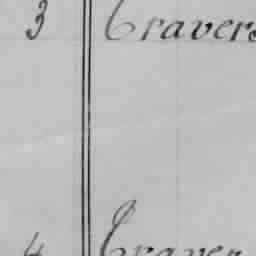 3 Travers
4 Traver